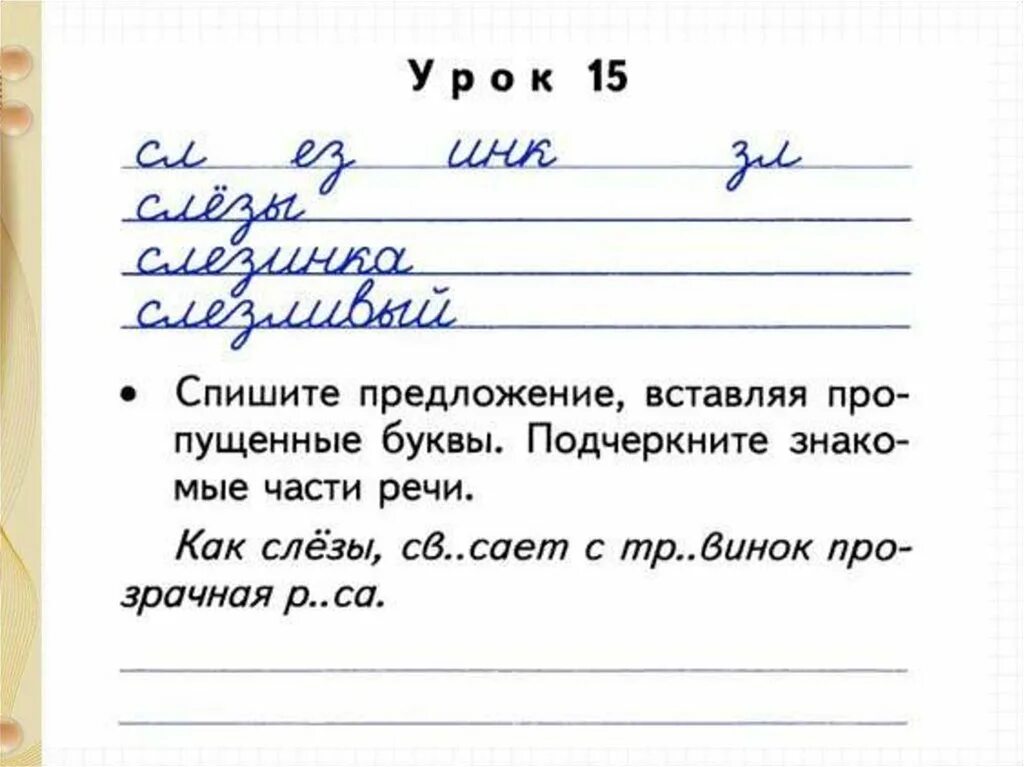 Урок 15
сл ез инк зл
слёзы
слезинка
слезливый
• Спишите предложение, вставляя про-
пущенные буквы. Подчеркните знако-
мые части речи.
Как слёзы, св..сает с тр..винок про-
зрачная р..са.